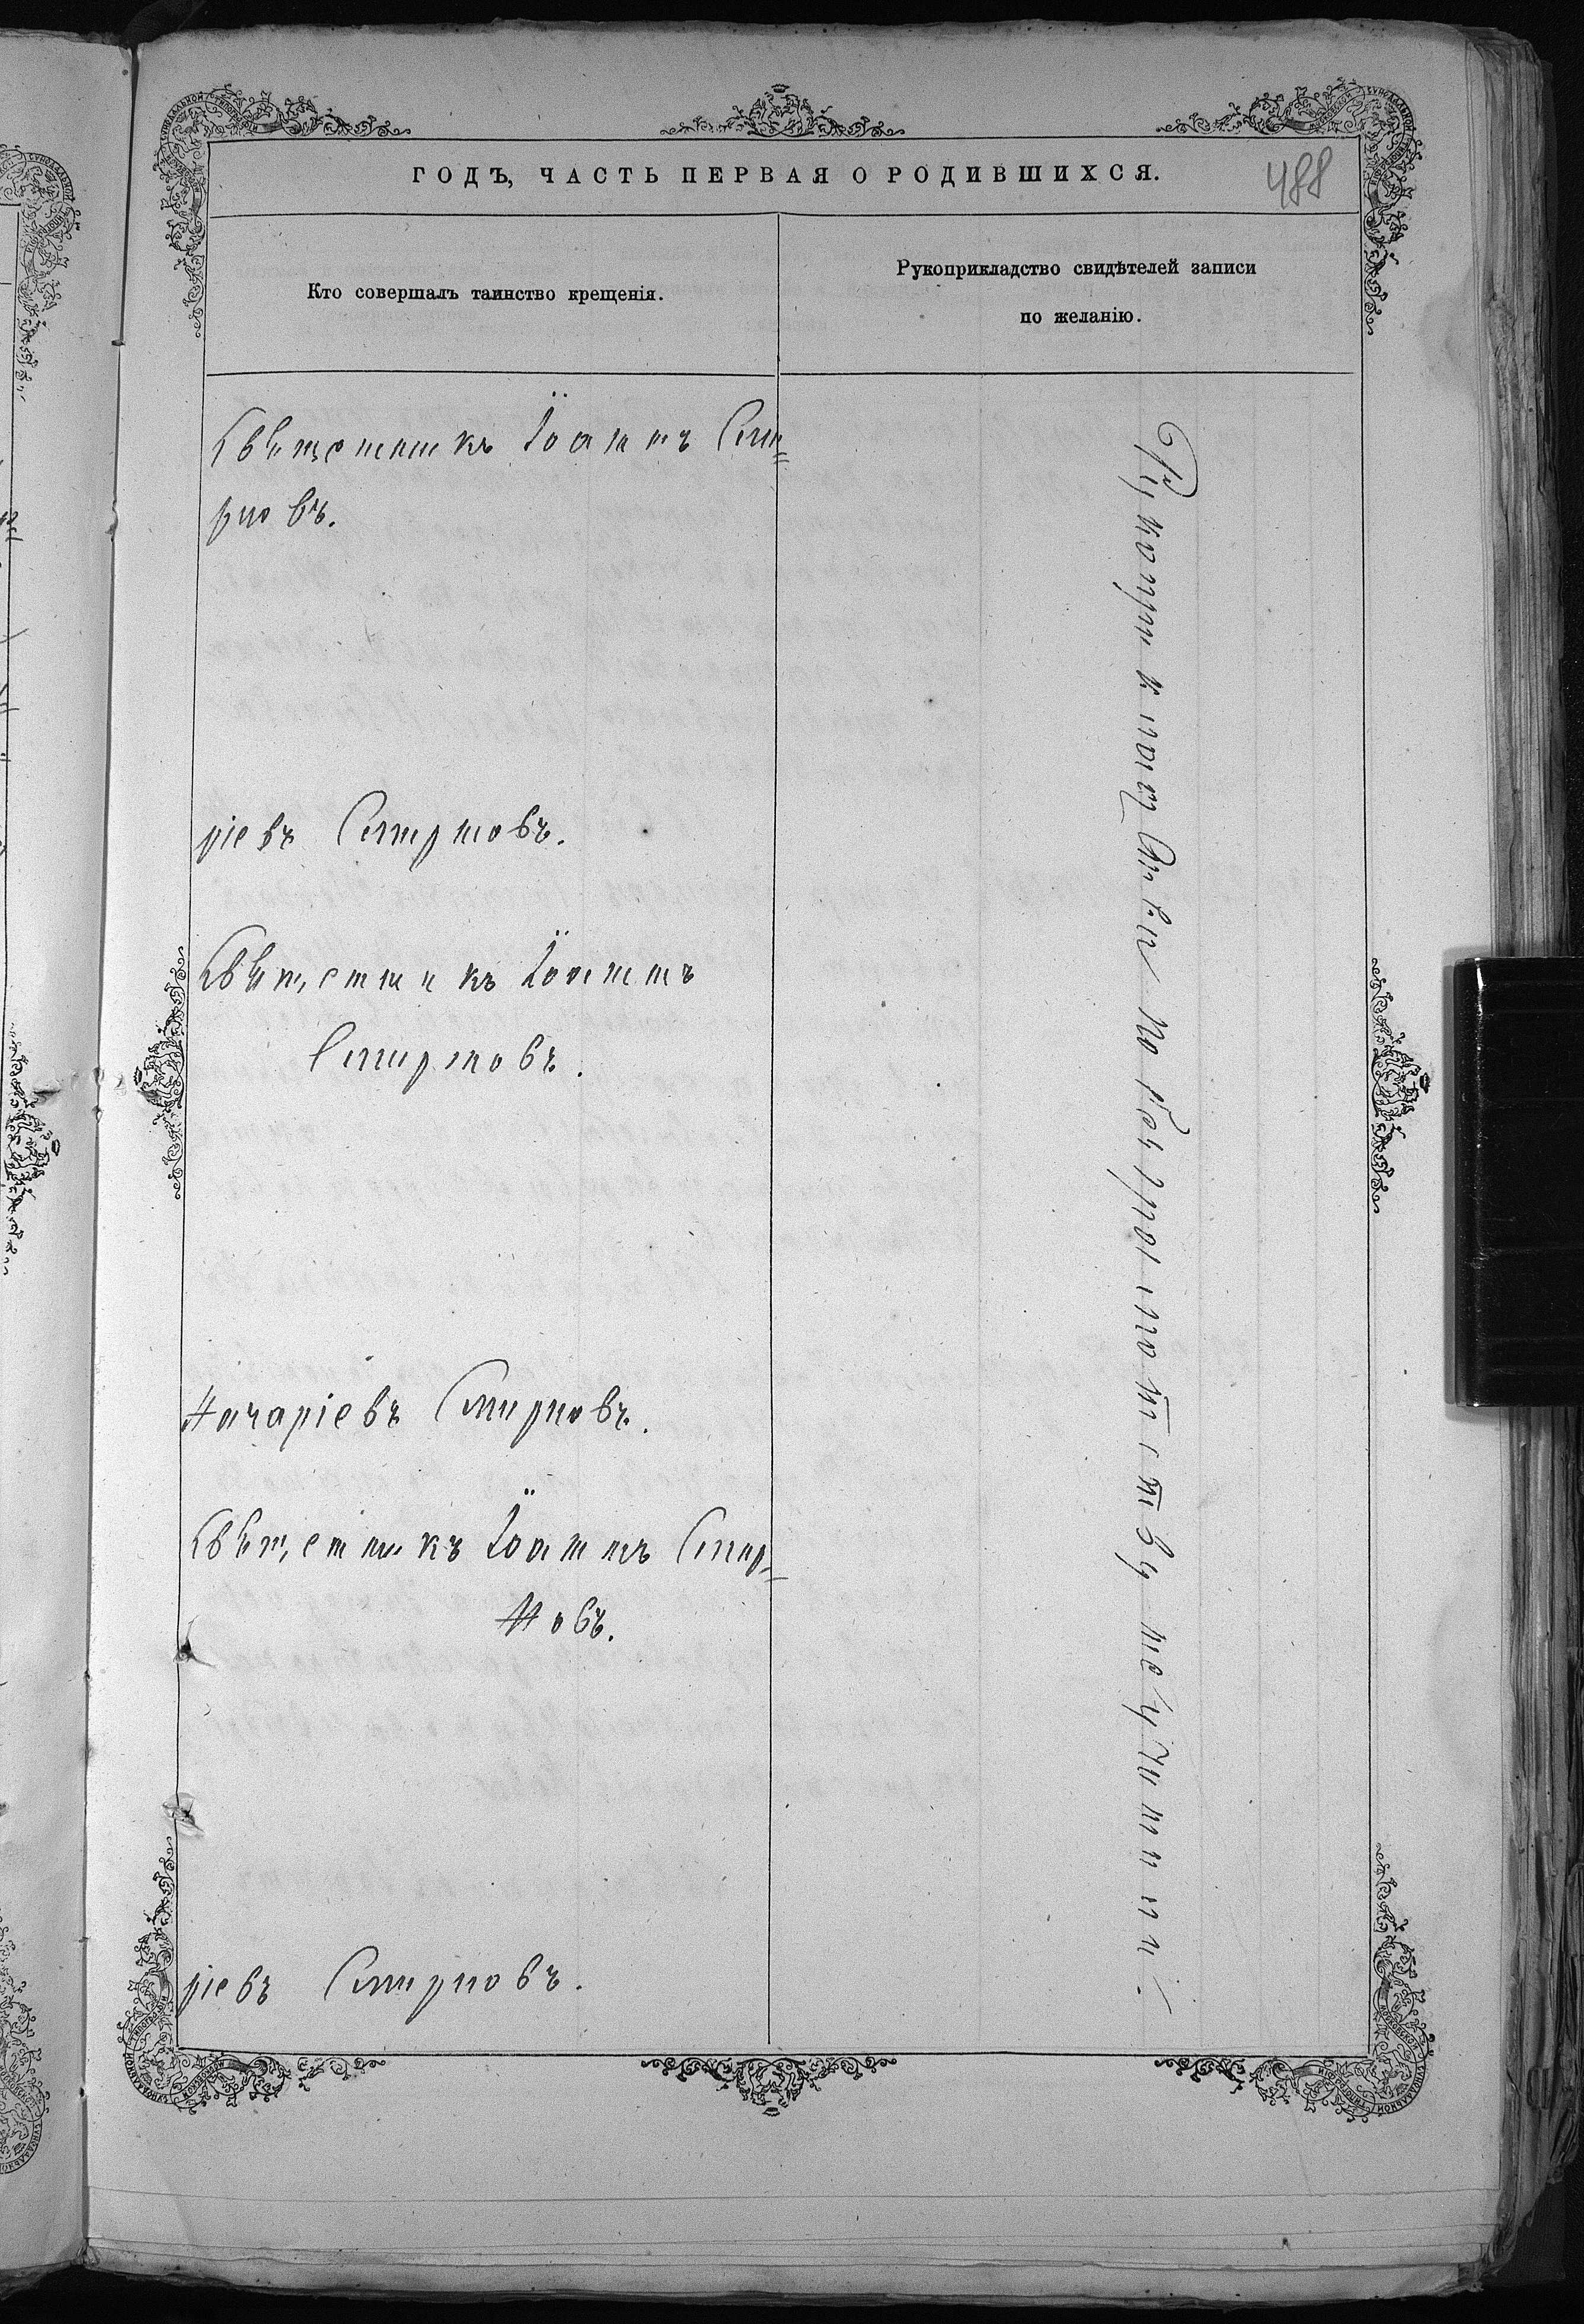 ГОДЪ, ЧАСТЬ ПЕРВАЯ О РОДИВШИХСЯ.
488
Кто совершалъ таинство крещенія.
Рукоприкладство свидѣтелей записи
по желанію.
Священникъ Іоаннъ Сми=
рновъ.
ріевъ Смирновъ.
Священникъ Іоаннъ
Смирновъ.
Макаріевъ Смирновъ.
Священникъ Іоаннъ Смир=
новъ.
ріевъ Смирновъ.
Рукоприкладства по безграмотству не учинили.